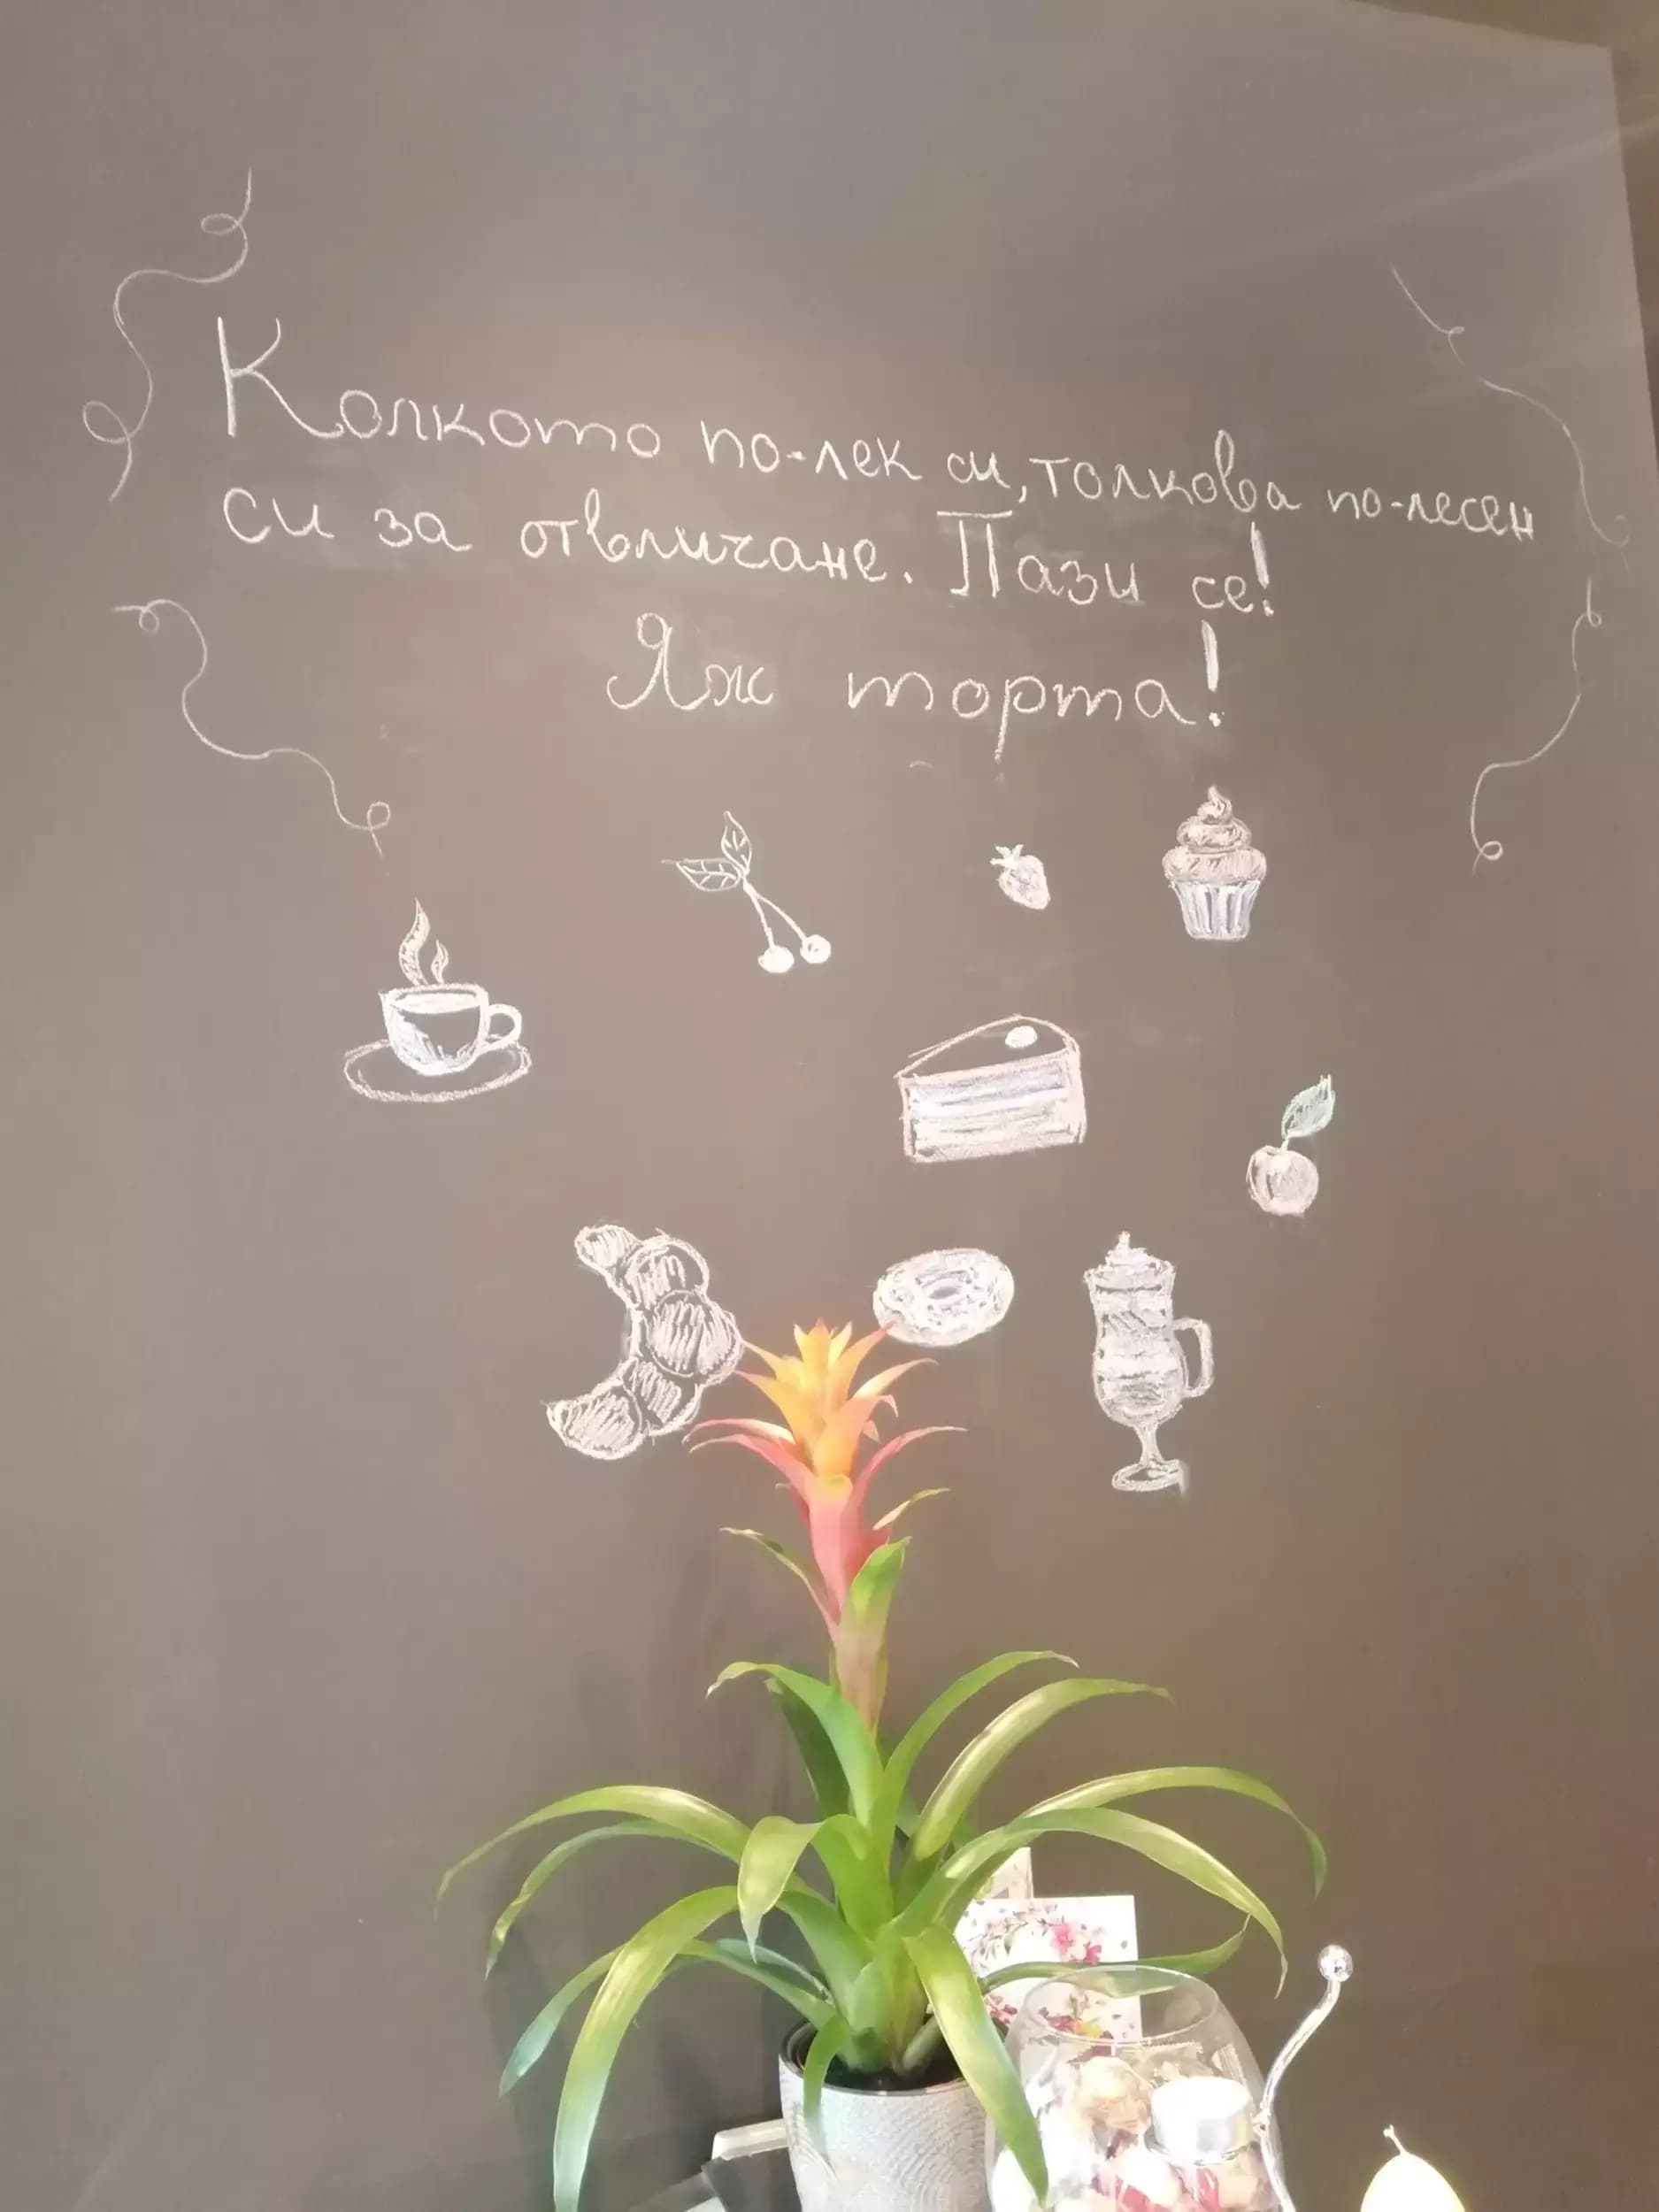 Колкото по-лек си, толкова по-лесен
си за отвличане. Пази се!
Яж торта!